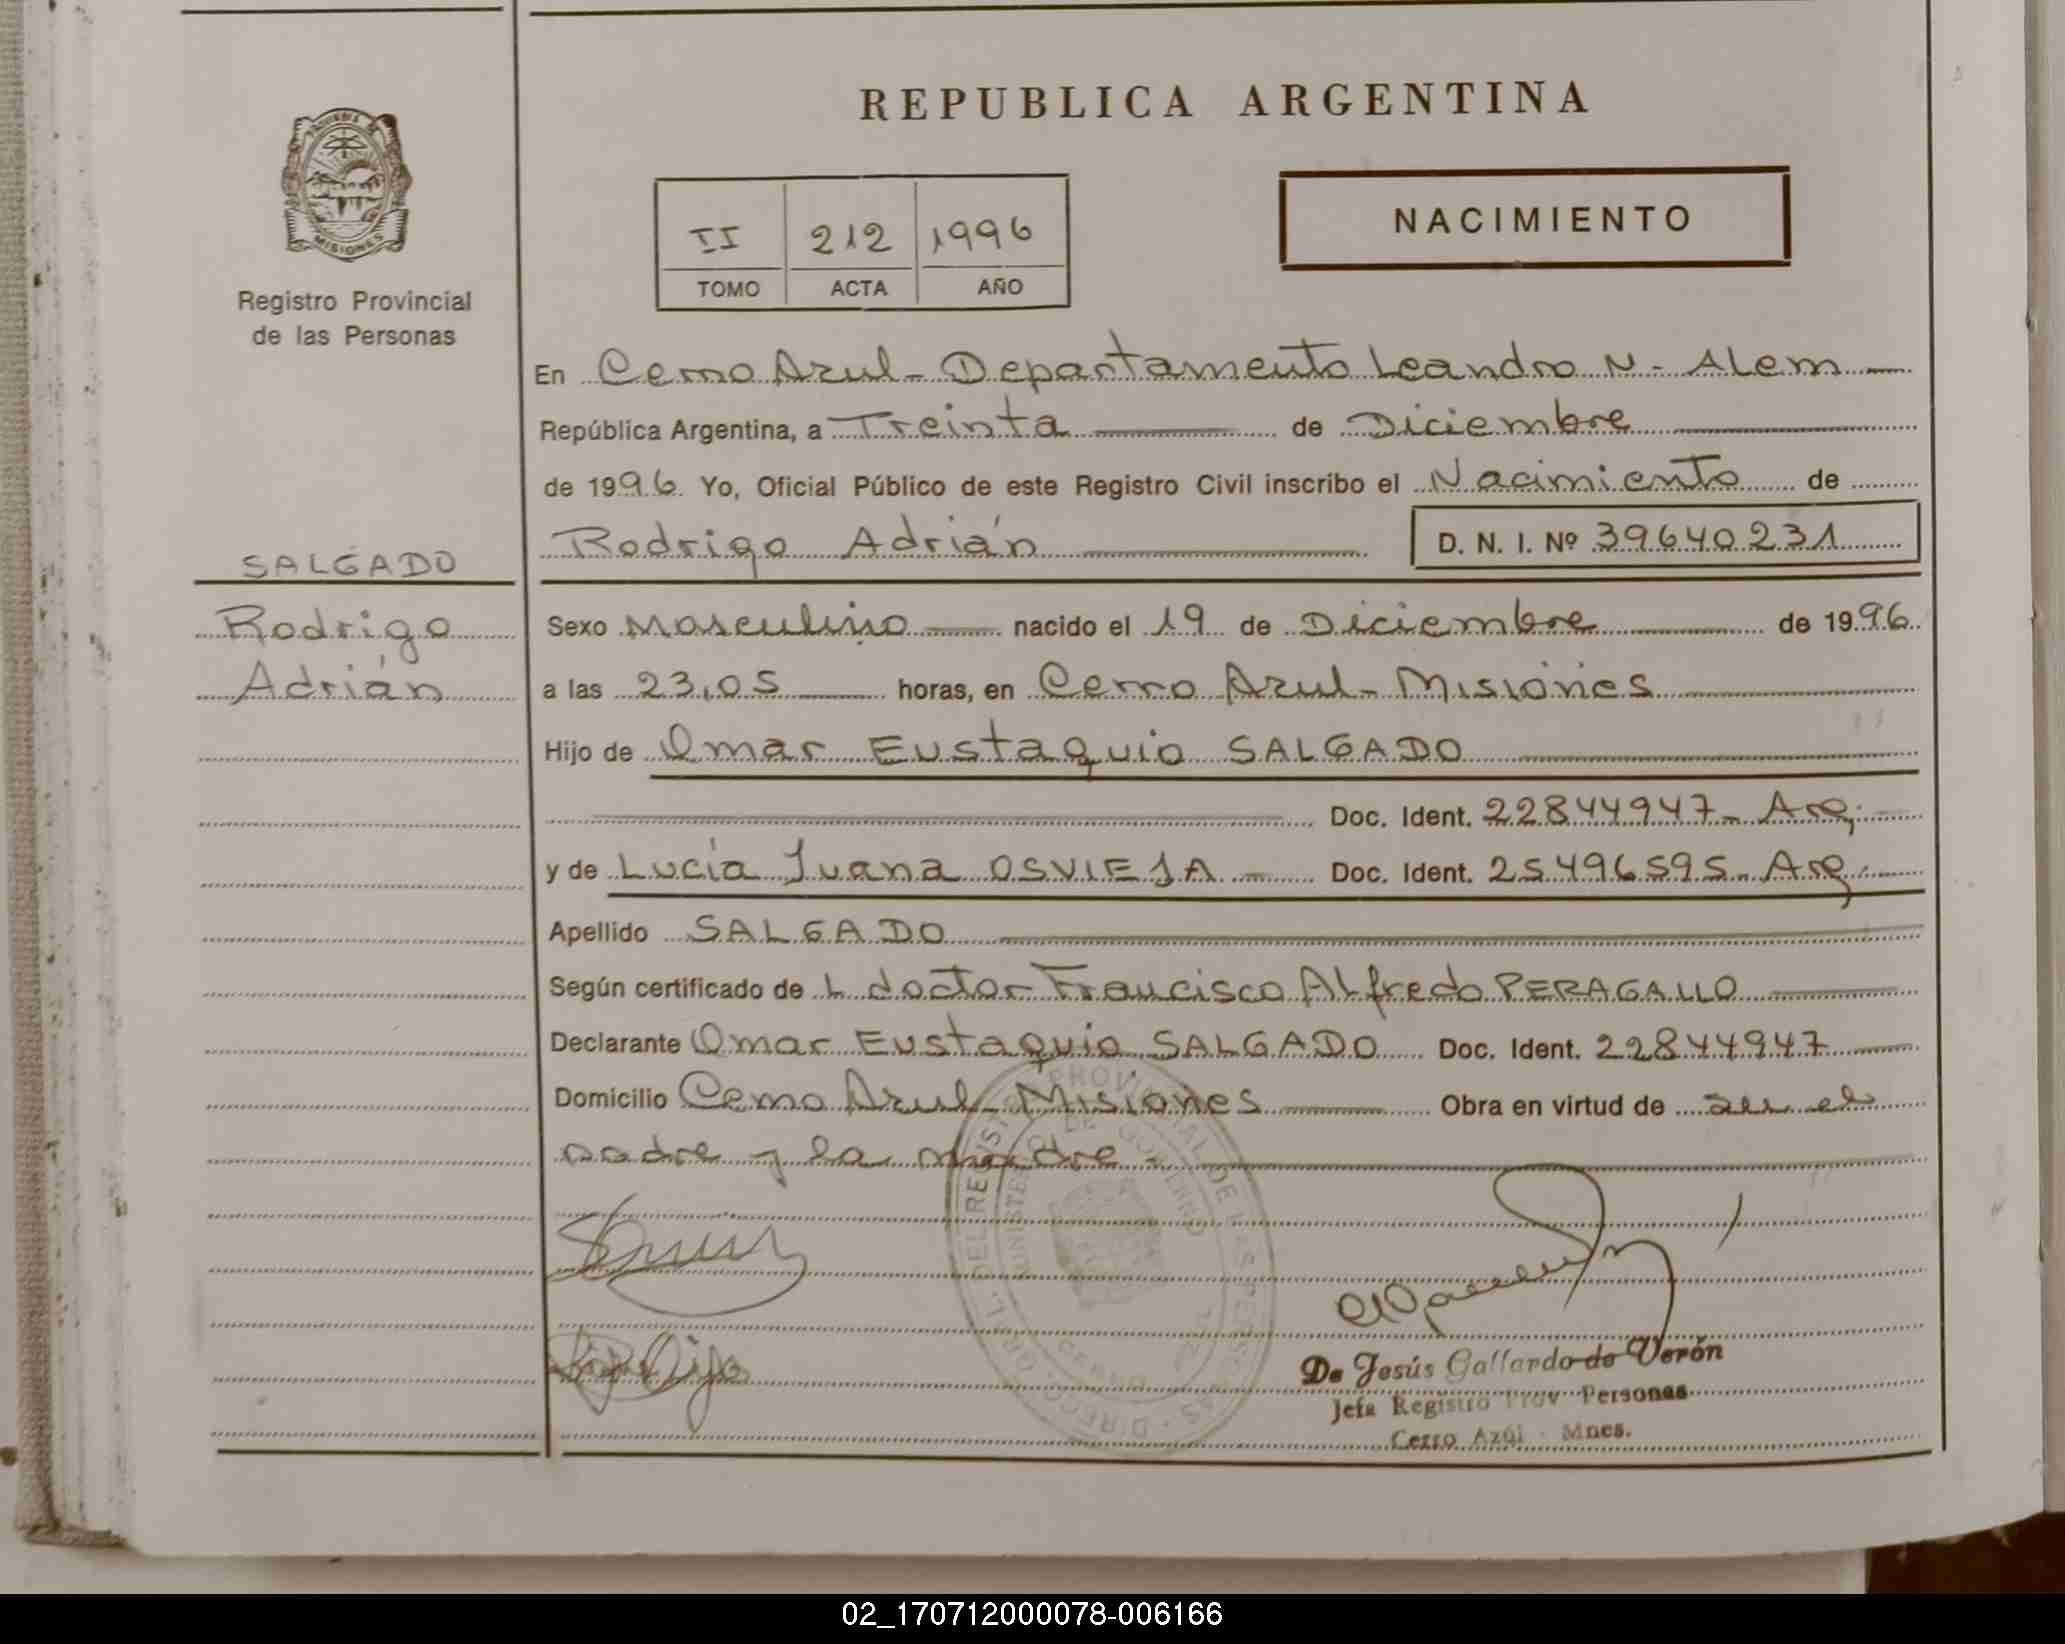 REPUBLICA ARGENTINA
NACIMIENTO
II 212 1996
TOMO ACTA AÑO
MISIONES
Registro Provincial
de las Personas
En Cerro Azul - Departamento Leandro N. Alem
República Argentina, a Treinta de Diciembre
de 1996. Yo, Oficial Público de este Registro Civil inscribo el Nacimiento de
Rodrigo Adrián D. N. I. Nº 39640231
SALGADO
Rodrigo
Adrián
Sexo Masculino nacido el 19 de Diciembre de 1996.
a las 23,05 horas, en Cerro Azul - Misiones
Hijo de Omar Eustaquio SALGADO
Doc. Ident. 22844947 - Arg.
y de Lucía Juana OSVIEJA - Doc. Ident. 25496595 - Arg.
Apellido SALGADO
Según certificado de L doctor Francisco Alfredo PERAGALLO
Declarante Omar Eustaquio SALGADO Doc. Ident. 22844947
Domicilio Cerro Azul - Misiones Obra en virtud de ser el
padre y la madre -
De Jesús Gallardo de Verón
Jefa Registro Prov Personas
Cerro Azúl - Mnes.
02_170712000078-006166